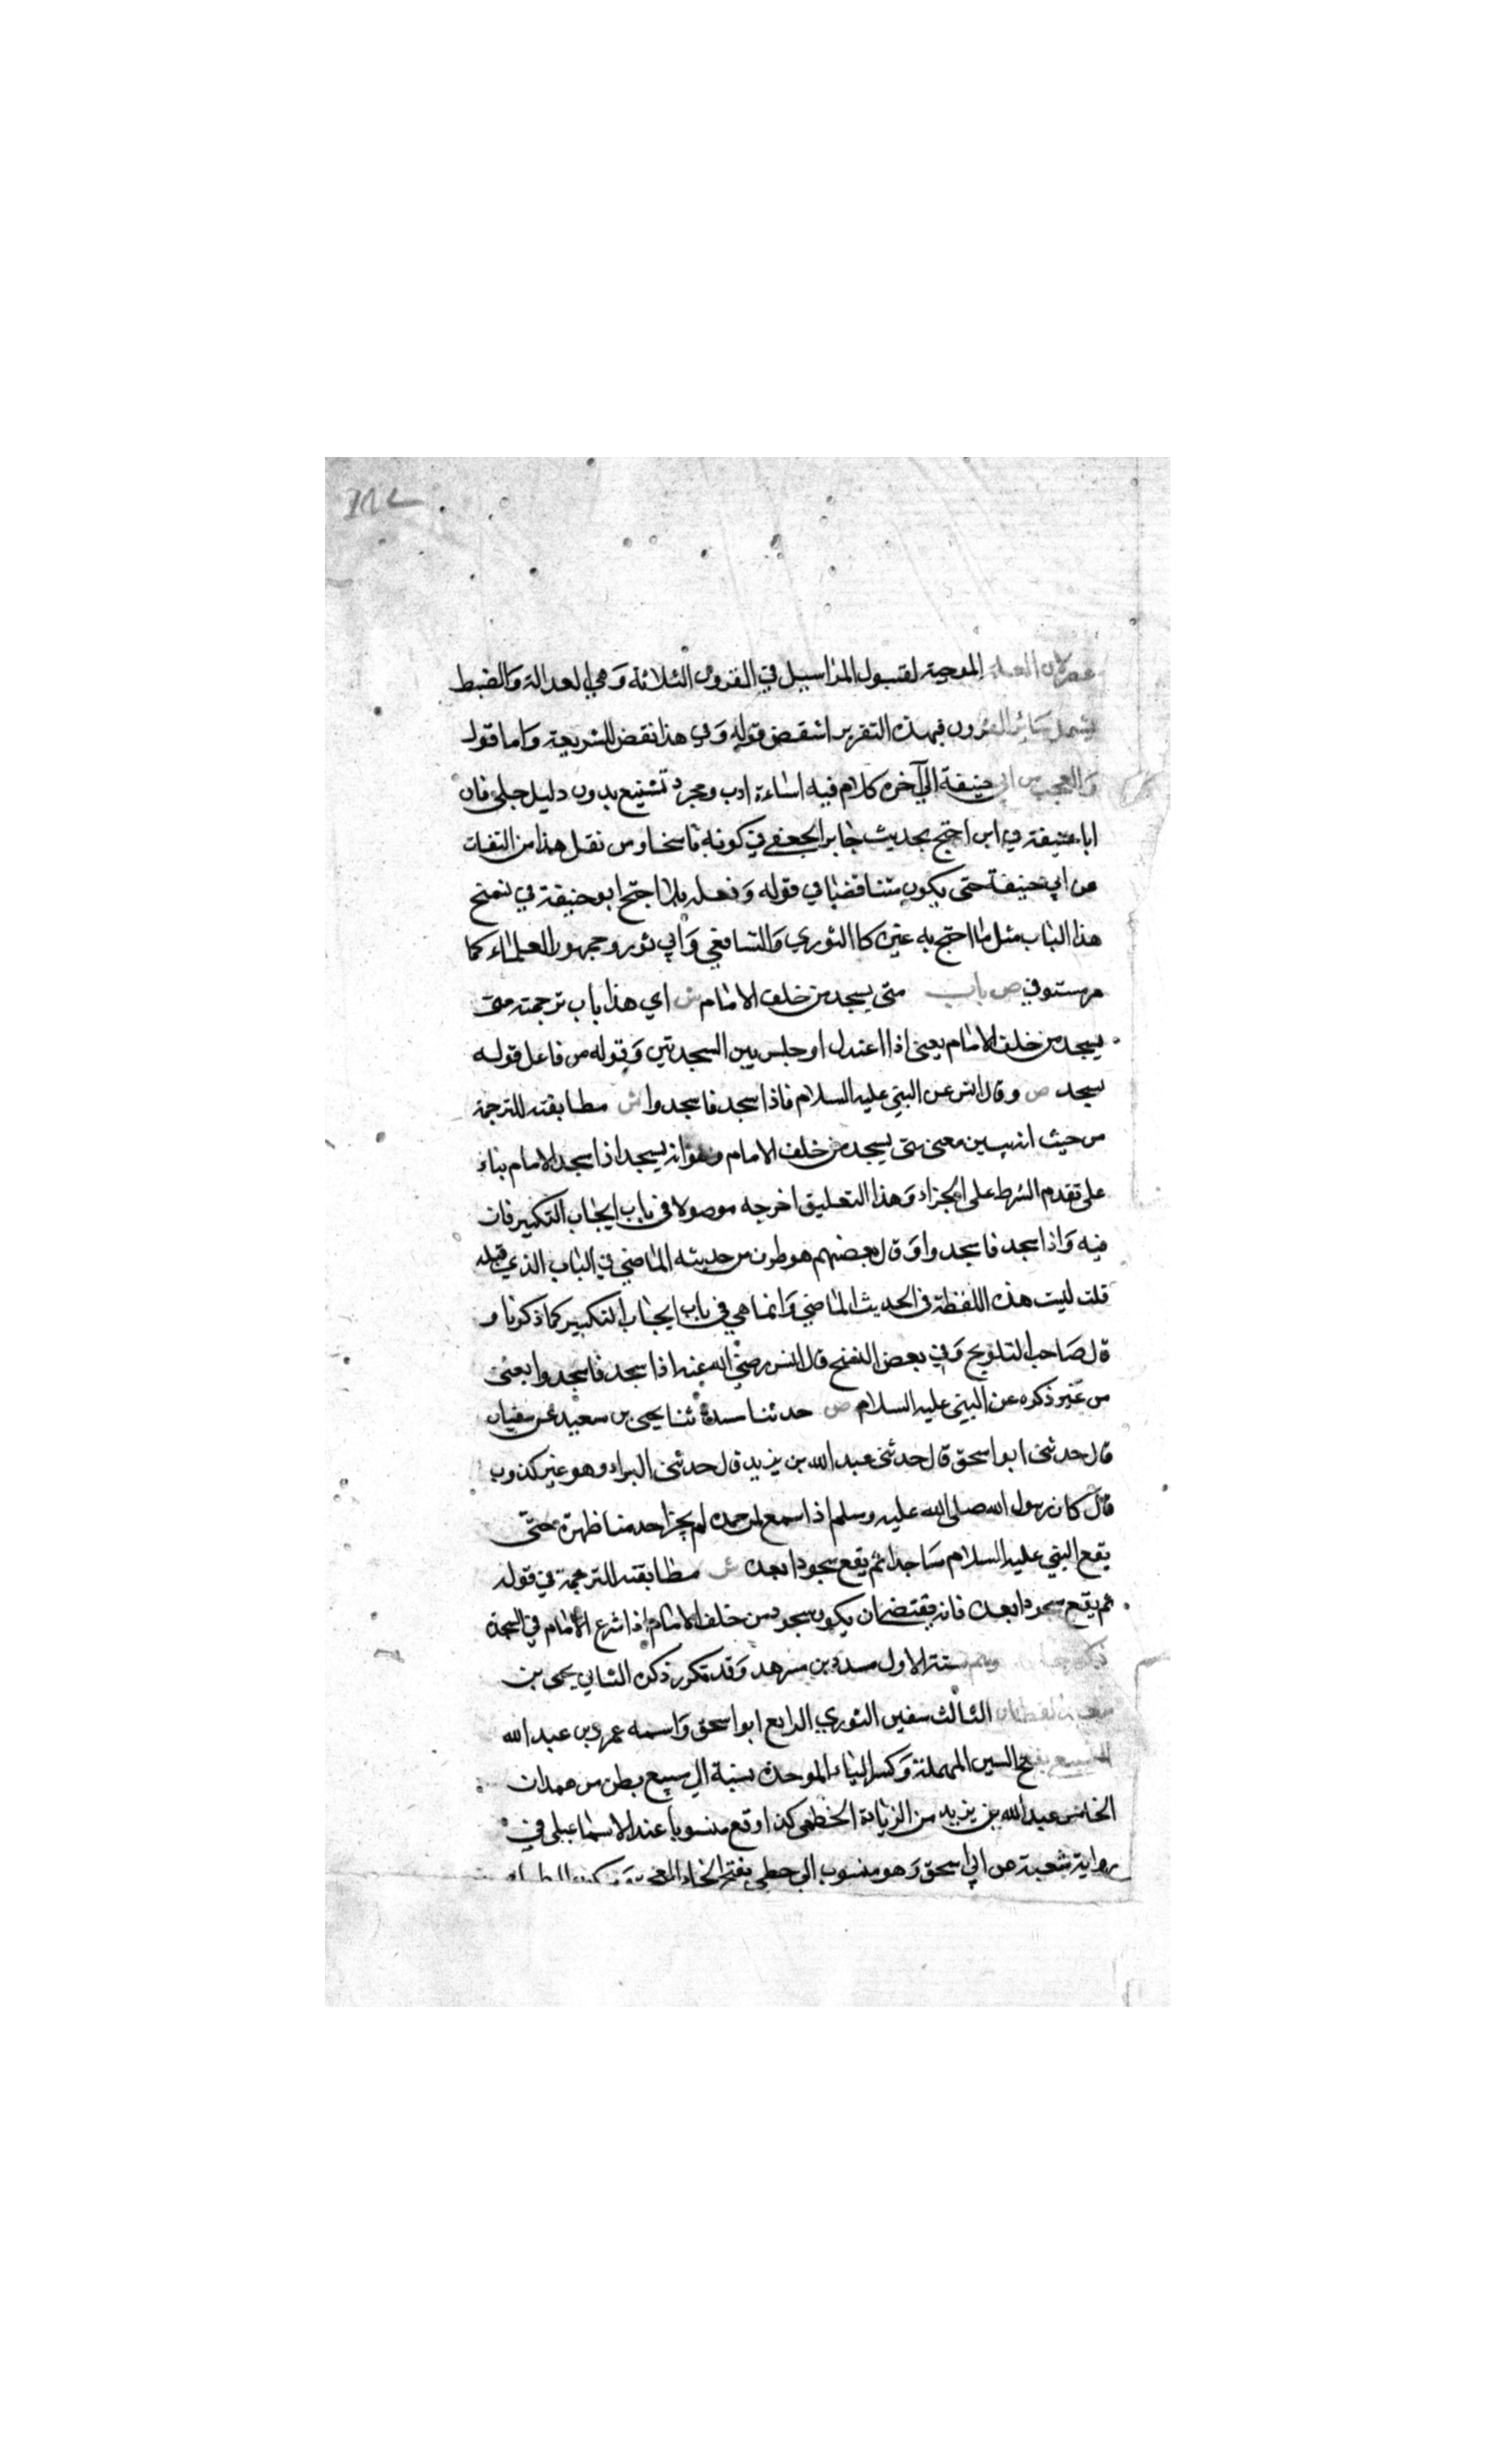 لان العلة الموجبة لقبول المراسيل في القرون الثلاثة وهي العدالة والضبط
يشمل سائر القرون فبهذه التقرير انتقض قوله وفي هذا نقض للشريعة واما قوله
والعجب من ابي حنيفة الي آخره كلام فيه اساءة ادب ومجرد تشنيع بدون دليل جلي فان
ابا حنيفة في اين احتج بحديث جابر الجعفي في كونه ناسخا ومن نقل هذا من الثقات
عن ابي حنيفة حتى يكون متناقضا في قوله وفعله بل ما احتج ابو حنيفة في نسخ
هذا الباب مثل ما احتج به غيره كا الثوري والشافعي وابي ثور وجمهور العلماء كما
مر مستوفي ص باب متى يسجد من خلف الامام ش اي هذا باب ترجمته متى
يسجد من خلف الامام يعنى اذا اعتدل او جلس بين السجدتين وقوله من فاعل قوله
يسجد ص وقال انس عن النبي عليه السلام فاذا سجد فاسجدوا ش مطابقته للترجمة
من حيث انه يبين معنى متى يسجد من خلف الامام وهو انه يسجد اذا سجد الامام بناء
على تقدم الشرط على الجزاء وهذا التعليق اخرجه موصولا في باب ايجاب التكبير فان
فيه واذا سجد فاسجدوا وقال بعضهم هو طرف من حديثه الماضي في الباب الذي قبله
قلت ليست هذه اللفظة في الحديث الماضي وانما هي في باب ايجاب التكبير كما ذكرنا و
قال صاحب التلويح وفي بعض النسخ قال انس رضي الله عنه اذا سجد فاسجدوا يعنى
من غير ذكره عن النبي عليه السلام ص حدثنا مسدد ثنا يحيى بن سعيد عن سفيان
قال حدثني ابو اسحق قال حدثني عبد الله بن يزيد قال حدثني البراء وهو غير كذوب
قال كان رسول الله صلى الله عليه وسلم اذا سمع لمن حمده لم يحن احد منا ظهره حتى
يقع النبي عليه السلام ساجدا ثم يقع سجودا بعده ش مطابقته للترجمة في قوله
ثم يقع سجودا بعده فانه يقتضي ان يكون سجود من خلف الامام اذا شرع الامام في السجدة
ذكر رجاله وهم ستة الاول مسدد بن مسرهد وقد تكرر ذكره الثاني يحيى بن
سعيد القطان الثالث سفين الثوري الرابع ابو اسحق واسمه عمرو بن عبد الله
السبيعي بفتح السين المهملة وكسر الباء الموحدة نسبة الي سبيع بطن من همدان
الخامس عبد الله بن يزيد من الزيادة الخطمي كذا وقع منسوبا عند الاسماعيلي في
رواية شعبة عن ابي اسحق وهو منسوب الي خطمي بفتح الخاء المعجمة